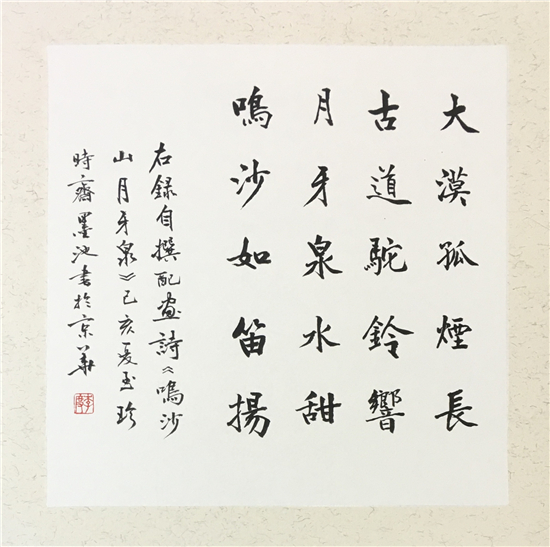 大漠孤煙長
古道駝鈴響
月牙泉水甜
鳴沙如笛揚
右録自撰配画詩《鳴沙
山月牙泉》己亥夏玉珍
時齋墨池書於京華